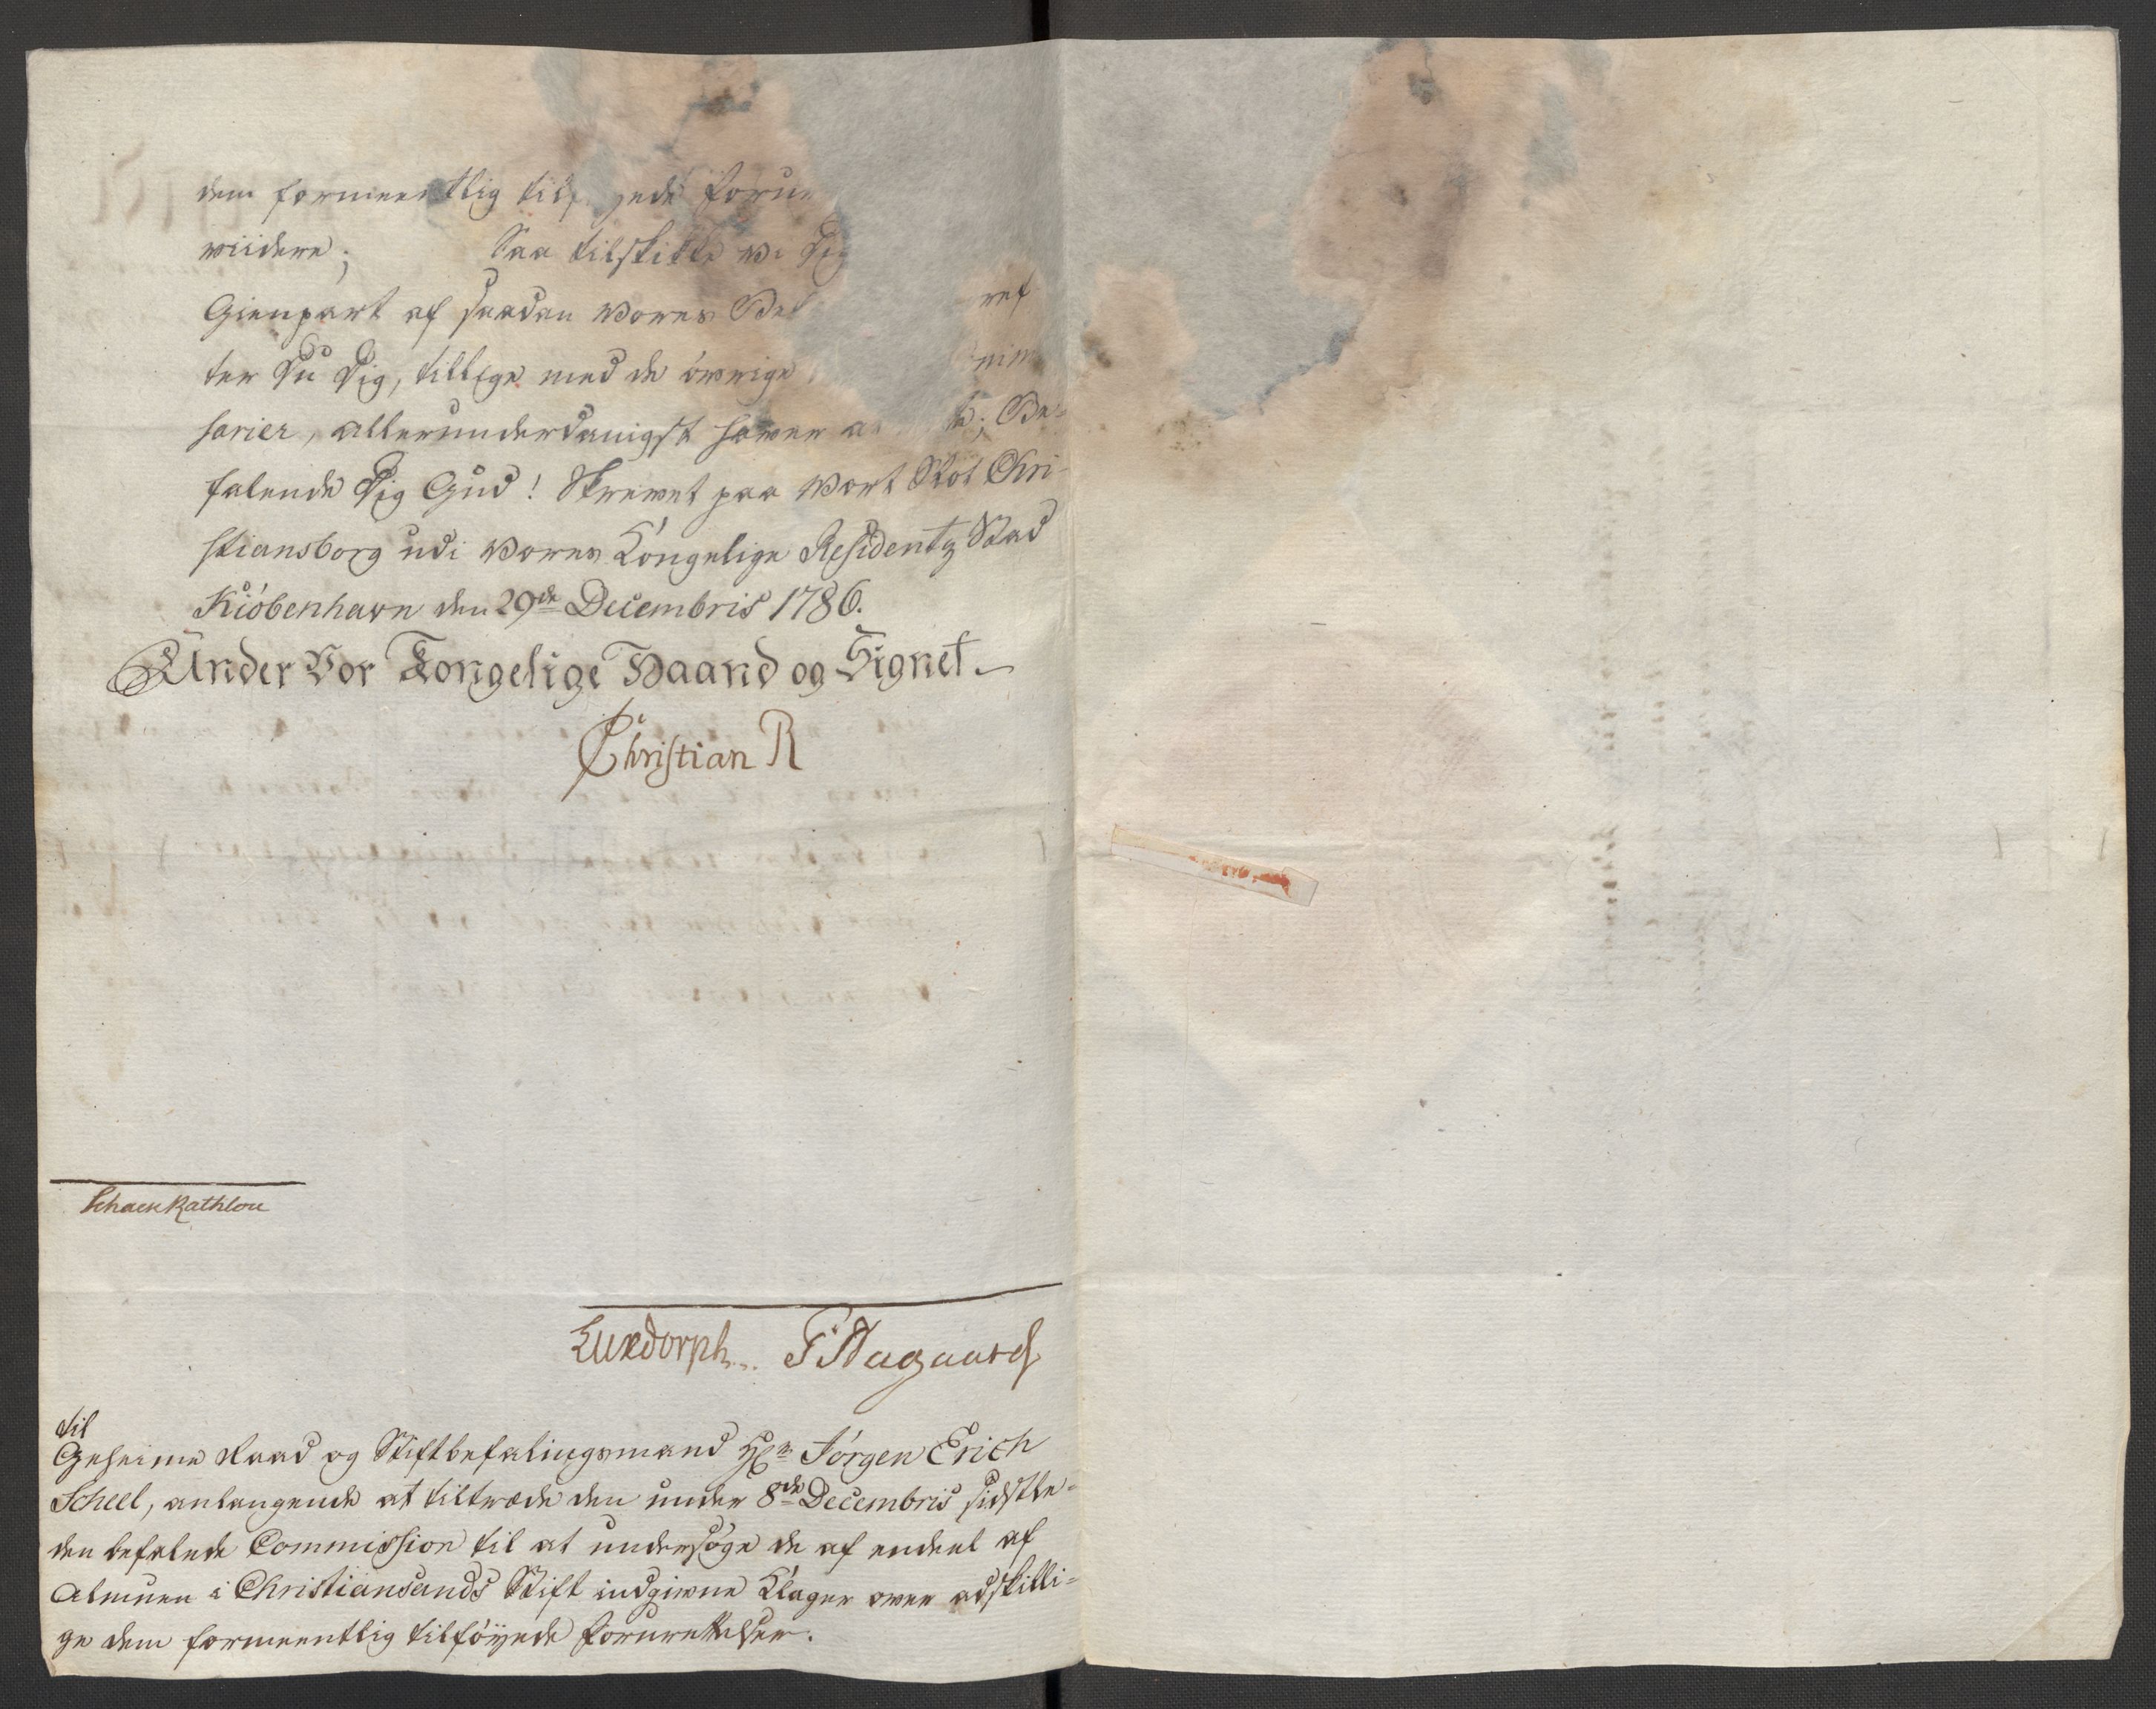 dem formeentlig tilf  yede Foru
wiidere; Saa tilskikke Wi Dig
Gienpart af saadan Vores Bef ref
ter Du Dig, tillige med de öwrige
sarier, allerunderdanigst hawer a    e; Be-
falende Dig Gud! Skrewet paa Vort Slot Chri-
stiansborg udi Vores Kongelige Residentz Stad
Kiöbenhavn den 29de Decembris 1786.
Under Vor Kongelige Haand og Signet.
Christian R
Schack Rathlou
Luxdorph. Aagaard
Til
Geheime Raad og Stiftbefalingsmand Hr. Jörgen Erich
Scheel, anlangende at tiltræde den under 8de Decembris sidstle-
den befalede Commission til at undersöge de af endeel af
Almuen i Christiansands Stift indgivne Klager over adskilli-
ge dem formeentlig tilföyede Forurettelser.